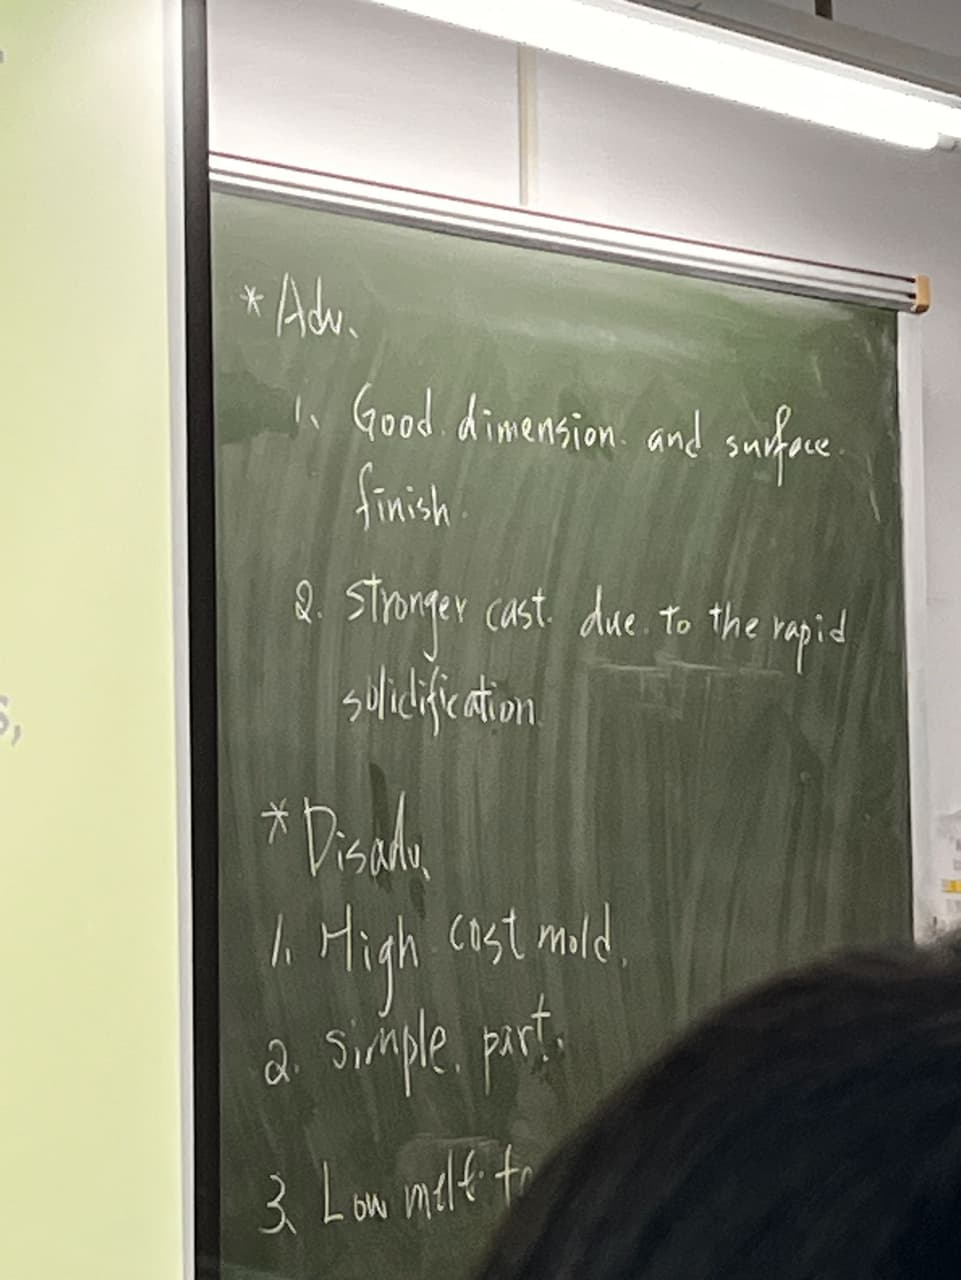 * Adv.
1. Good dimension and surface
finish.
2. stronger cast due to the rapid
solidification
* Disadv.
1. High cost mold.
2. simple part.
3. Low melt
s,